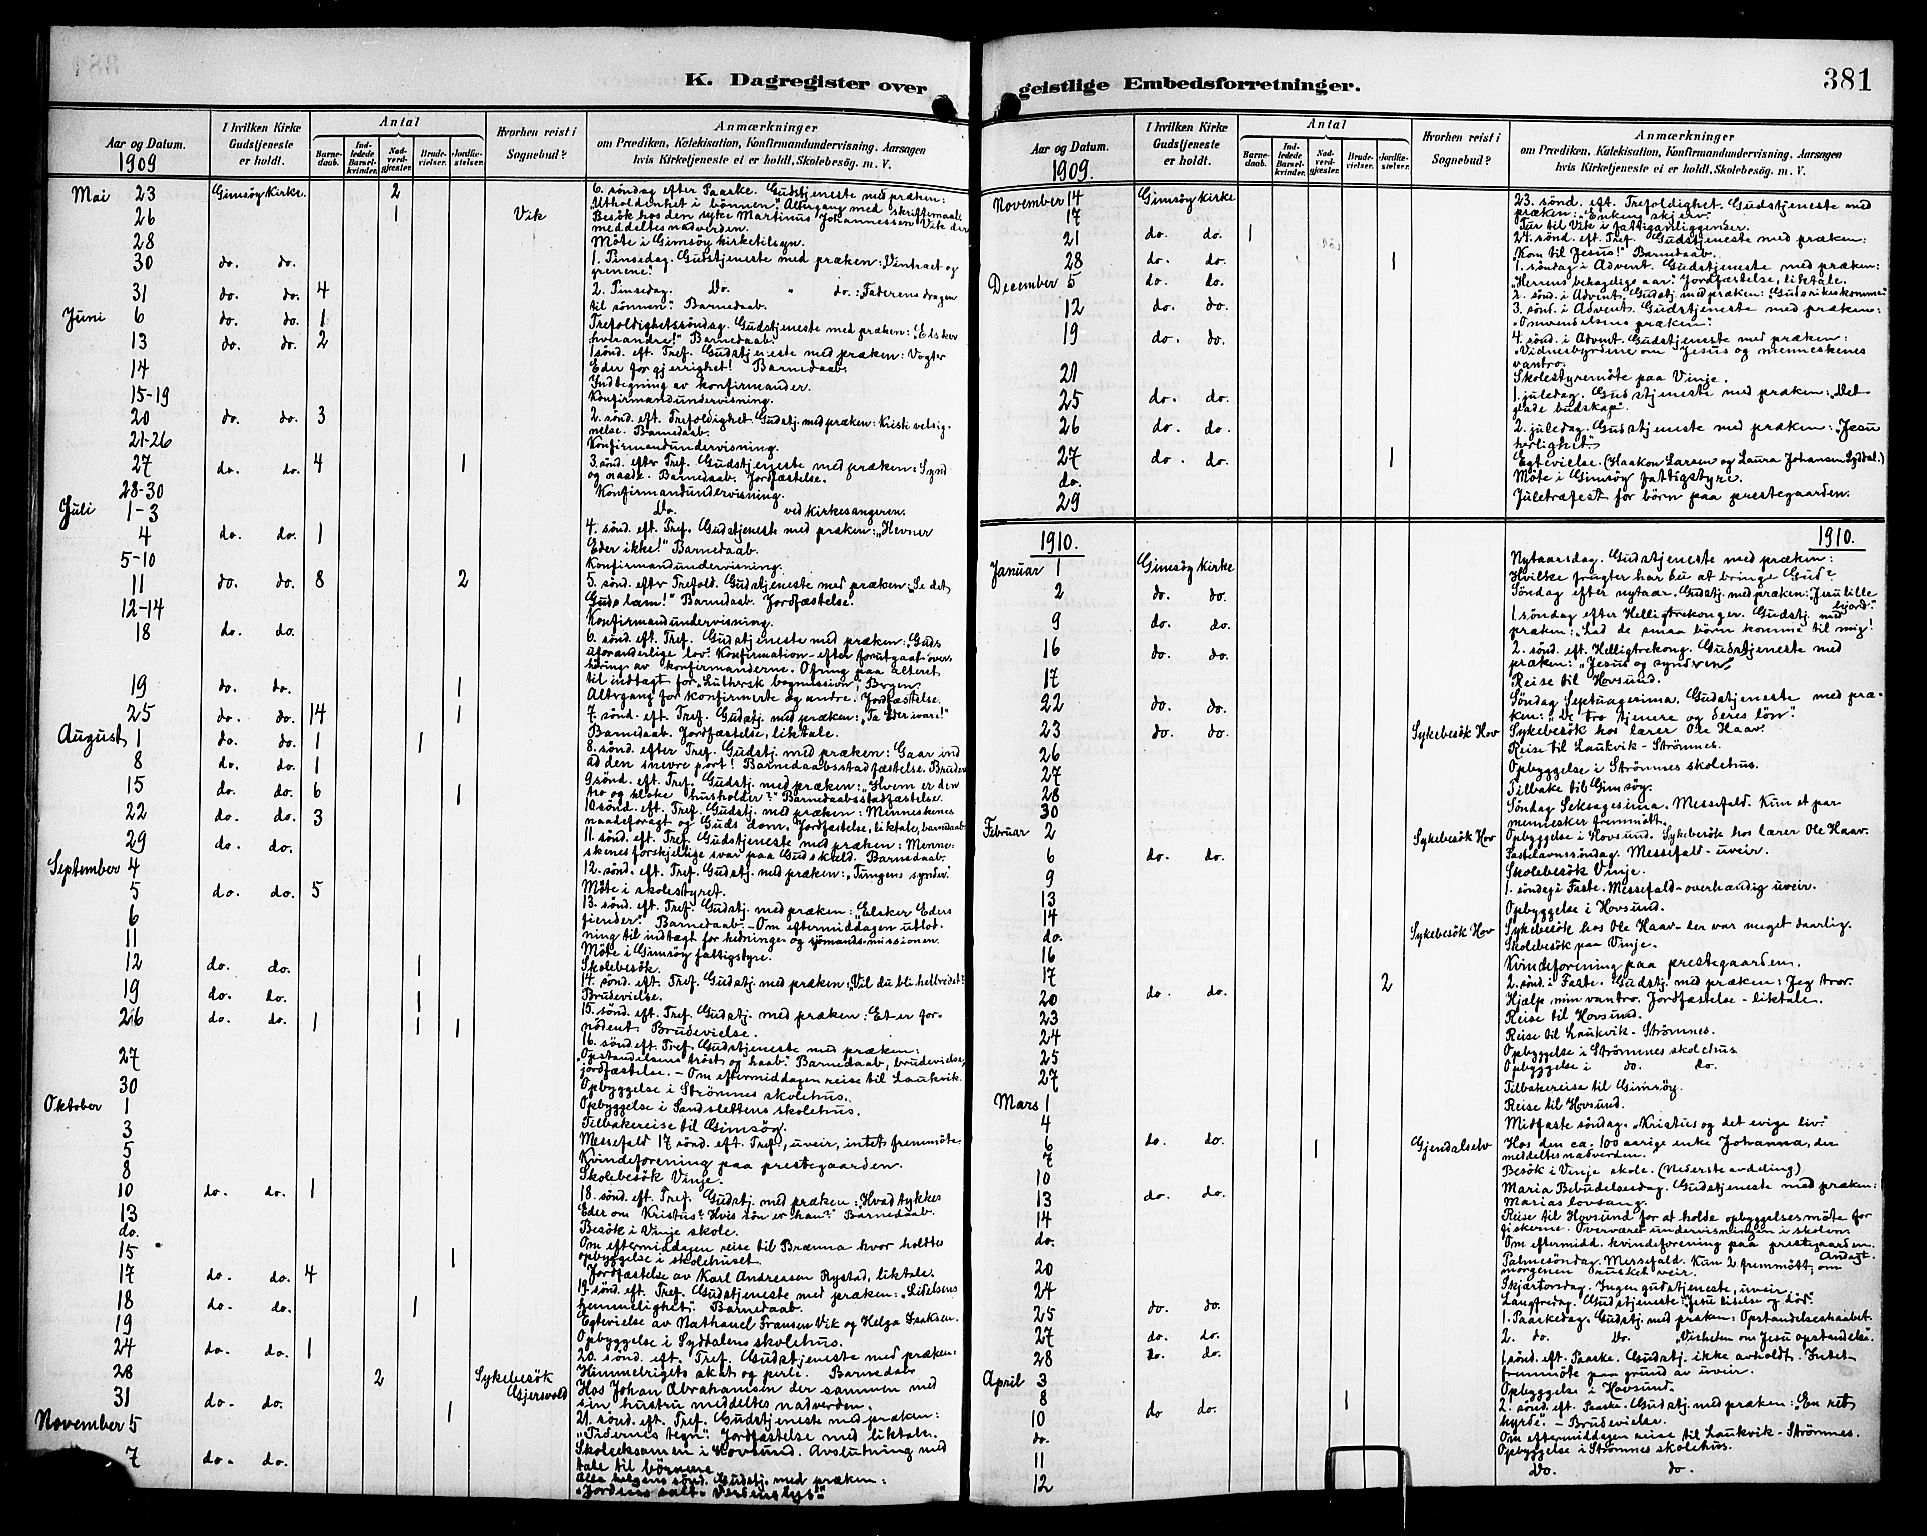 K. Dagregister over
Aar og Datum.
1909
I hvilken Kirke Gudstjeneste er holdt.
Antal
Barnedaab.
Indledede Barselkvinder.
Nadverdgjester.
Brudevielser.
Jordfæstelser.
Hvorhen reist i Sognebud?
Anmærkninger
om Prædiken, Katekisation, Konfirmandundervisning. Aarsagen
hvis Kirketjeneste ei er holdt, Skolebesög. m. V.
Mai 23 Gimsöy Kirke. 2 6. söndag efter Paaske. Gudstjeneste med præken:
"Utholdenhet i bönnen". Altergang med skriftemaal.
26 1 Vik Besök hos den syke Martinus Johannessen Vik der
meddeltes nadverden.
28 Möte i Gimsöy kirketilsyn.
30 do. do. 1. Pinsedag. Gudstjeneste med præken: Vintræet og
grenene".
31 do. do. 4 2. Pinsedag. Do. " do.: Faderens dragen
til sönnen." Barnedaab.
Juni 6 do. do. 1 Trefoldighetssöndag. Gudstjeneste med præken: "Elsker
hverandre!" Barnedaab.
13 do. do. 2 1 sönd. eft. Tref. Gudstjeneste med præken: Vogter
Eder for gjerrighet! Barnedaab.
14 Indtegning av konfirmander.
15-19 Konfirmandundervisning.
20 do. do. 3 2. sönd. eft. Trefoldighet. Gudstj. med præken: Kristi velsig-
nelse. Barnedaab.
21-26 Konfirmandundervisning.
27 do. do. 4 1 3. sönd. eftr Tref. Gudstjeneste med præken: Synd
og naade. Barnedaab. Jordfæstelse.
28-30 Konfirmandundervisning.
Juli 1-3 Do. ved kirkesangeren.
4 do. do. 1 4. sönd. eft. Tref. Gudstjeneste med præken: "Hevner
Eder ikke!" Barnedaab.
5-10 Konfirmandundervisning.
11 do. do. 8 2 5. sönd. eftr Trefold. Gudstjeneste med præken: "Se det
Guds lam!" Barnedaab. Jordfæstelse.
12-14 Konfirmandundervisning.
18 do. do. 6. sönd. eft. Tref. Gudstjeneste med præken: "Guds
uforanderlige lov". Konfirmation - efter forutgaat over-
höring av konfirmanderne. Ofring paa alteret
til indtægt for "Luthersk bymission", Bergen.
19 do. do. 1 Altergang for konfirmerte og andre. Jordfæstelse.
25 do. do. 14 1 7. sönd. eft. Tref. Gudstj. med præken: "Ta Eder ivare!"
Barnedaab. Jordfæstelse, liktale.
August 1 do. do. 1 1 8. sönd. efter Tref. Gudstj. med præken: Gaar ind
ad den snevre port! Barnedaabsstadfæstelse. Brudev.
8 do. do. 1 9 sönd. eft. Tref. Gudstj. med præken: "Hvem er den
tro og kloke husholder?" Barnedaabsstadfæstelse.
15 do. do. 6 1 10 sönd. eft. Tref. Gudstj. med præken: Menneskenes
naadeforagt og Guds dom. Jordfæstelse, liktale, barnedaab.
22 do. do. 3 11. sönd. eft. Tref. Gudstjeneste med præken: Menne-
skenes forskjellige svar paa Guds kald. Barnedaab.
29 do. do. 12. sönd. eft. Tref. Gudstj. med præken: "Tungens synder".
September 4 Möte i skolestyret.
5 do. do. 5 13. sönd. eft. Tref. Gudstj. med præken: "Elsker Eders
fiender". Barnedaab. - Om eftermiddagen utlod-
ning til indtægt for hedninge- og sjömandsmissionen.
6 Möte i Gimsöy fattigstyre.
11 Skolebesök.
12 do. do. 1 14. sönd. eft. Tref. Gudstj. med præken: "Vil du bli helbredet?
Brudevielse.
19 do. do. 1 15. sönd. eft. Tref. Gudstj. med præken: Et er for-
nödent. Brudevielse.
26 do. do. 1 1 1 16. sönd. eft. Tref. Gudstjeneste med præken:
"Opstandelsens tröst og haab". Barnedaab, brudevielse,
jordfæstelse. - Om eftermiddagen reise til Laukvik.
27 Opbyggelse i Strömnes skolehus.
30 Opbyggelse i Sandslettens skolehus.
Oktober 1 Tilbakereise til Gimsöy.
3 Messefald 17 sönd. eft. Tref., uveir, intet fremmöte.
5 Kvindeforening paa prestegaarden.
8 Skolebesök Vinje.
10 do. do. 1 18. sönd. eft. Tref. Gudstj. med præken: "Hvad tykkes
Eder om Kristus? Hvis sön er han?" Barnedaab.
13 Besök i Vinje skole.
do. Om eftermiddagen reise til Brenna hvor holdtes
opbyggelse i skolehuset.
15 1 Jordfæstelse av Karl Andreasen Rystad, liktale.
17 do. do. 4 19. sönd. eft. Tref. Gudstjeneste med præken: "Lidelsens
hemmelighet". Barnedaab.
18 do. do. 1 Egtevielse av Nathanel Fransen Vik og Helga Isaksen.
19 Opbyggelse i Sydtalens skolehus.
24 do. do. 1 20. sönd. eft. Tref. Gudstjeneste med præken:
Himmelrigets skat og perle. Barnedaab
28 2 Sykebesök Gjersvold Hos Johan Abrahamsen der sammen med
sin hustru meddeltes nadverden.
31 do. do. 21. sönd. eft. Tref. Gudstjeneste med præken:
"Tidernes tegn".
November 5 1 Jordfæstelse med liktale.
Skoleeksamen i Hovsund. Avslutning med
tale til börnene.
7 do. do. Alle helgens sönd. Gudstj. med præken:
"Jordens salt. Verdens lys!"
geistlige Embedsforretninger.
381
Aar og Datum.
1909.
I hvilken Kirke Gudstjeneste er holdt.
Antal
Barnedaab.
Indledede Barselkvinder.
Nadverdgjester.
Brudevielser.
Jordfæstelser.
Hvorhen reist i Sognebud?
Anmærkninger
om Prædiken, Katekisation, Konfirmandundervisning, Aarsagen
hvis Kirketjeneste ei er holdt, Skolebesög. m. V.
November 14 Gimsöy Kirke 23. sönd. eft. Trefoldighet. Gudstjeneste med
præken: "Enkens skjerv".
17 Tur til Vik i fattiganliggender.
21 do. do. 1 24. sönd. eft. Tref. Gudstjeneste med præken:
"Kom til Jesus!" Barnedaab.
28 do. do. 1 1. söndag i Advent. Gudstjeneste med præken:
"Herrens behagelige aar". Jordfæstelse, liktale.
December 5 do. do. 2. sönd. i Advent. Gudstj. med præken: "Guds rikes komme"
12 do. do. 3. sönd. i Advent. Gudstjeneste med præken:
"Omvendelsens præken".
19 do. do. 4. sönd. i Advent. Gudstjeneste med præken:
"Vidnesbyrdene om Jesus og menneskenes
vantro.
21 Skolestyremöte paa Vinje.
25 do. do. 1. juledag. Gudstjeneste med præken: "Det
glade budskap".
26 do. do. 2. juledag. Gudstjeneste med præken: "Jesu
herlighet".
27 do. do. 1 Egtevielse. (Haakon Larsen og Laura Johansen Syddal.)
do. Möte i Gimsöy fattigstyre.
29 Juletræfest for börn paa prestegaarden.
1910. 1910.
Januar 1 Gimsöy Kirke Nytaarsdag. Gudstjeneste med præken:
Hvilke frugter har du at bringe Gud?
2 do. do. Söndag efter nytaar. Gudstj. med præken: Jesu lille
hjord."
9 do. do. 1. söndag efter Helligtrekonger. Gudstj. med
præken: "Lad de smaa börn komme til mig!
16 do. do. 2. sönd. eft. Helligtrekong. Gudstjeneste med
præken: "Jesus og synderen".
17 Reise til Hovsund.
22 do. do. Söndag Septuagesima. Gudstjeneste med præ-
ken: "De tro tjenere og deres lön".
23 do. do. Sykebesök Hov Sykebesök hos lærer Ole Haav.
26 Reise til Laukvik - Strömnes.
27 Opbyggelse i Strömnes skolehus.
28 Tilbake til Gimsöy.
30 Söndag Seksagesima. Messefald. Kun et par
mennesker fremmött.
Februar 2 Sykebesök Hov Opbyggelse i Hovsund. Sykebesök hos lærer Ole Haav.
6 do. do. Fastelavnssöndag. Messefald - uveir.
9 Skolebesök Vinje.
13 1. söndag i Faste. Messefald - overhændig uveir.
14 Opbyggelse i Hovsund.
do. Sykebesök Hov Sykebesök hos Ole Haav - der var meget daarlig.
16 Skolebesök paa Vinje.
17 Kvindeforening paa prestegaarden.
20 do. do. 2 2. sönd. i Faste. Gudstj. med præken: Jeg tror.
Hjælp min vantro. Jordfæstelse - liktale.
23 Reise til Hovsund.
24 Reise til Laukvik - Strömnes.
25 Opbyggelse i Strömnes skolehus
Opbyggelse i do. do.
27 Tilbakereise til Gimsöy.
Mars 1 Reise til Hovsund.
4 Midfaste söndag. "Kristus og det evige liv".
6 do. do. 1 Gjendalselv Hos den ca. 100 aarige enke Johanna, der
meddeltes nadverden.
7 Besök i Vinje skole. (Nederste avdeling)
10 Maria Bebudelsesdag. Gudstjeneste med præken:
Marias lovsang.
13 do. do. Reise til Hovsund for at holde opbyggelsesmöte for
fiskerne. Overværet undervisningen i skolen.
14 Om eftermidd. kvindeforening paa prestegaarden.
do. Palmesöndag. Messefald. Kun 2 fremmött, om Andagt.
morgenen rusket veir.
20 Skjærtorsdag. Ingen gudstjeneste, uveir.
24 Langfredag. Gudstjeneste: Jesu lidelse og död.
25 do. do. 1. Paaskedag. Gudstj. med præken: Opstandelseshaabet.
27 do. do. 2. do. Do. "Vissheten om Jesu opstandelse".
28 do. do. 1 sönd. eft. Paaske. Gudstj. ikke avholdt. Intet
fremmöte paa grund av uveir.
April 3 Opbyggelse i Hovsund.
8 do. do. 1 2. sönd. eft. Paaske. Gudstj. med præken: "En ret
hyrde". - Brudevielse.
10 do do. Om eftermiddagen reise til Laukvik - Strömnes.
do. Opbyggelse i Strömnes skolehus.
11 Do. do.
12